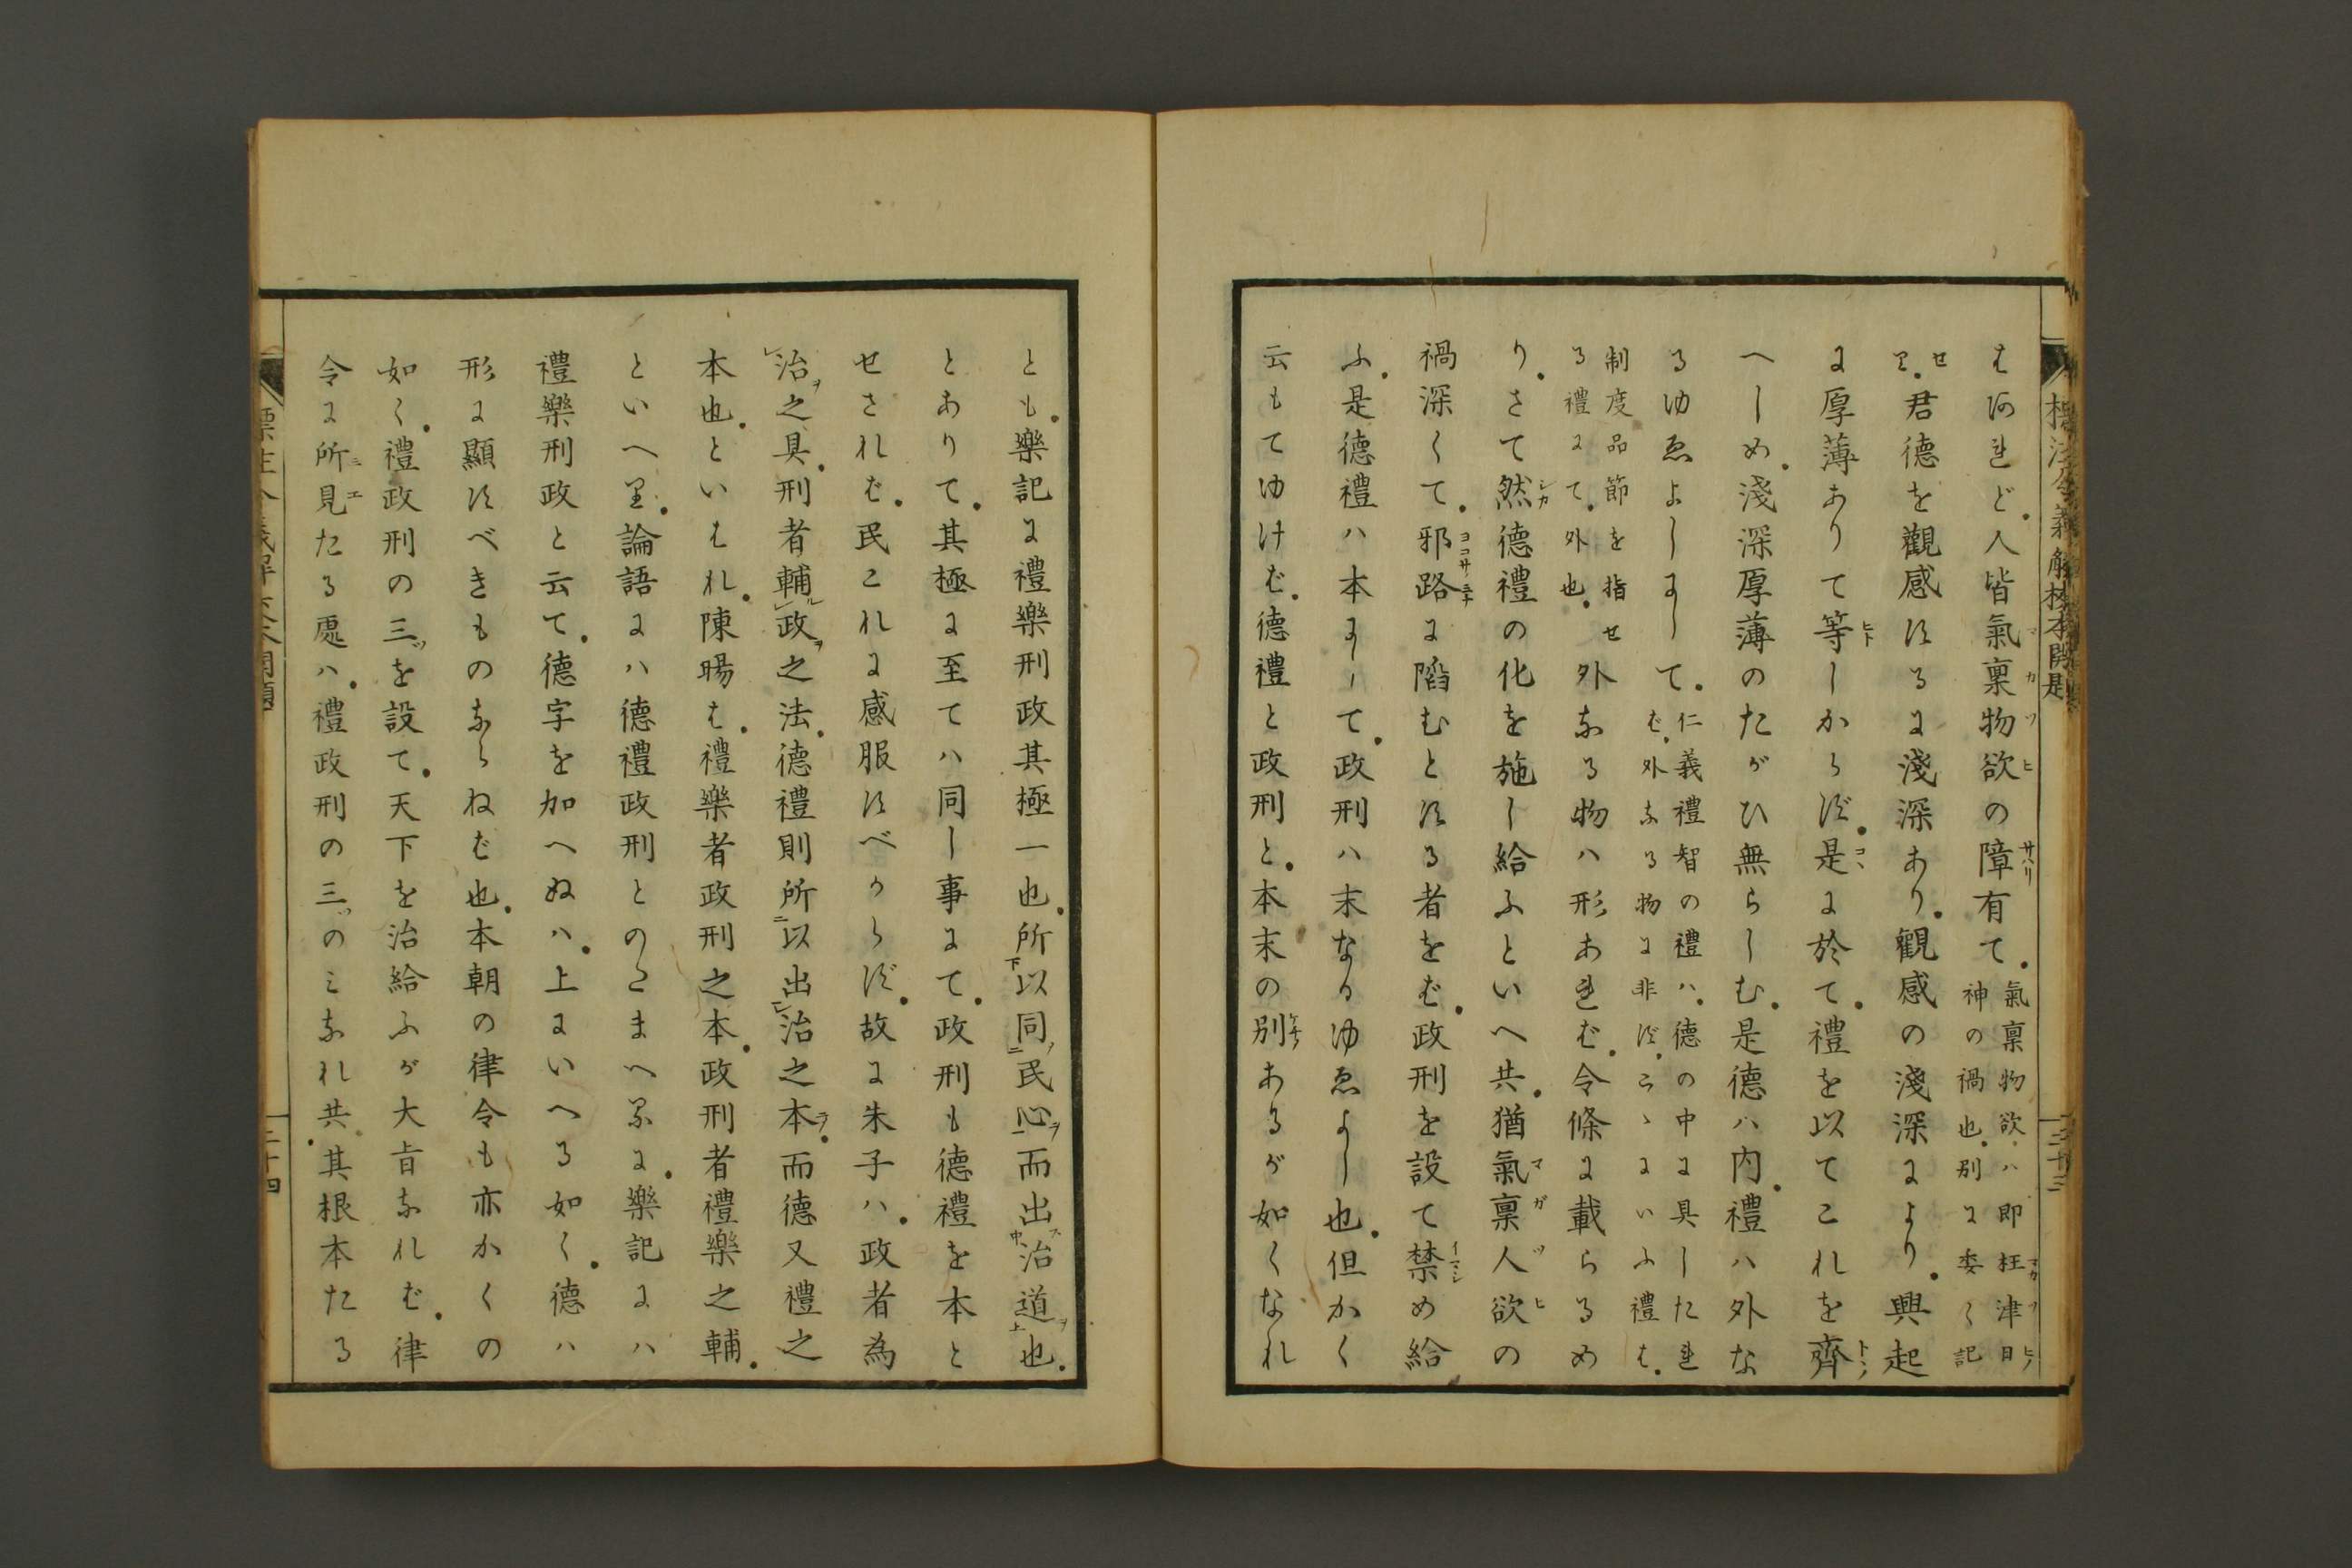 標注令義解校本開題
三十三
はあれど、人皆氣稟物欲の障有て、氣稟物欲ハ即枉津日
神の禍也、別に委く記
せ
り、君德を觀感するに淺深あり、觀感の淺深により、興起
に厚薄ありて等しからず、是に於て、禮を以てこれを齊
へしめ、淺深厚薄のたがひ無らしむ、是德ハ内、禮ハ外な
るゆゑよしにして、仁義禮智の禮ハ、德の中に具したれ
ば、外なる物に非ず、こゝにいふ禮は、
制度品節を指せ
る禮にて、外也、外なる物ハ形あれば、令條に載らるめ
り、さて然德禮の化を施し給ふといへ共、猶氣稟人欲の
禍深くて、邪路に陷むとする者をば、政刑を設て禁め給
ふ、是德禮ハ本にして、政刑ハ末なるゆゑよし也、但かく
云もてゆけば、德禮と政刑と、本末の別あるが如くなれ
とも、樂記に禮樂刑政其極一也、所以同民心而出治道也、
とありて、其極に至てハ同し事にて、政刑も德禮を本と
せされば、民これに感服すべからず、故に朱子ハ、政者為
治之具、刑者輔政之法、德禮則所以出治之本、而德又禮之
本也、といはれ、陳暘は、禮樂者政刑之本、政刑者禮樂之輔、
といへり、論語にハ德禮政刑とのたまへるに、樂記にハ
禮樂刑政と云て、德字を加へぬハ、上にいへる如く、德ハ
形に顯すべきものならねば也、本朝の律令も亦かくの
如く、禮政刑の三ツを設て、天下を治給ふが大旨なれば、律
令に所見たる處ハ、禮政刑の三ツのミなれ共、其根本たる
標注令義解校本開題
三十四